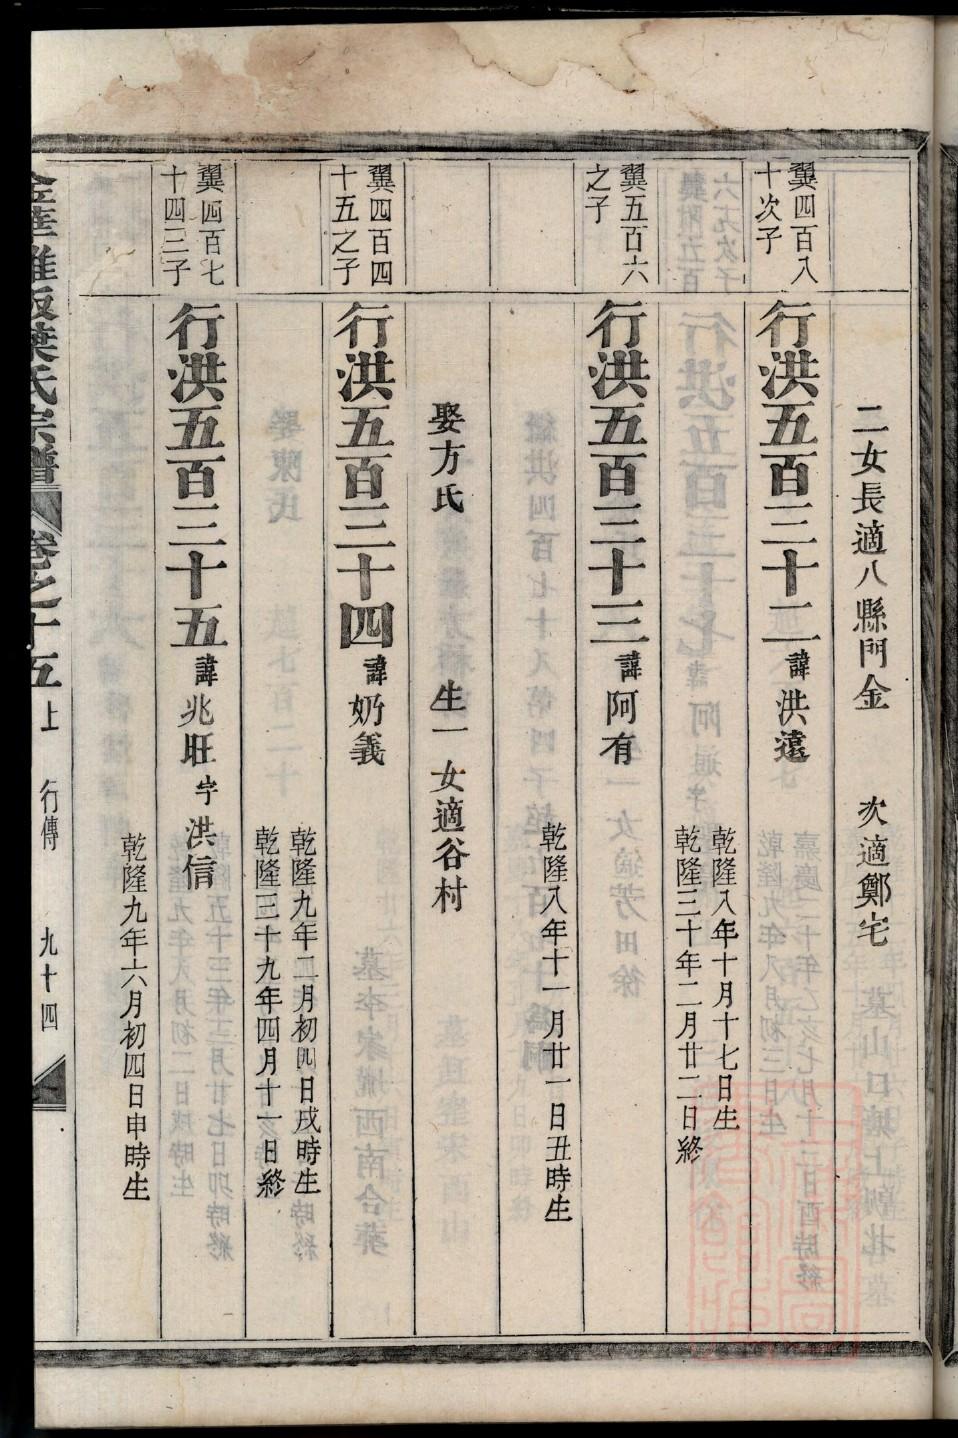 二女長適八縣門金　次適鄭宅
翼四百八
十次子
行洪五百三十二　諱洪遠
乾隆八年十月十七日生
乾隆三十年二月廿二日終
翼五百六
之子
行洪五百三十三　諱阿有
乾隆八年十一月廿一日丑時生
娶方氏　生一女適谷村
翼四百四
十五之子
行洪五百三十四　諱奶義
乾隆九年二月初四日戌時生
乾隆三十九年四月十一日終
翼四百七
十四三子
行洪五百三十五　諱兆旺字洪信
乾隆九年六月初四日申時生
葉氏宗譜　卷之十五上　行傳　九十四